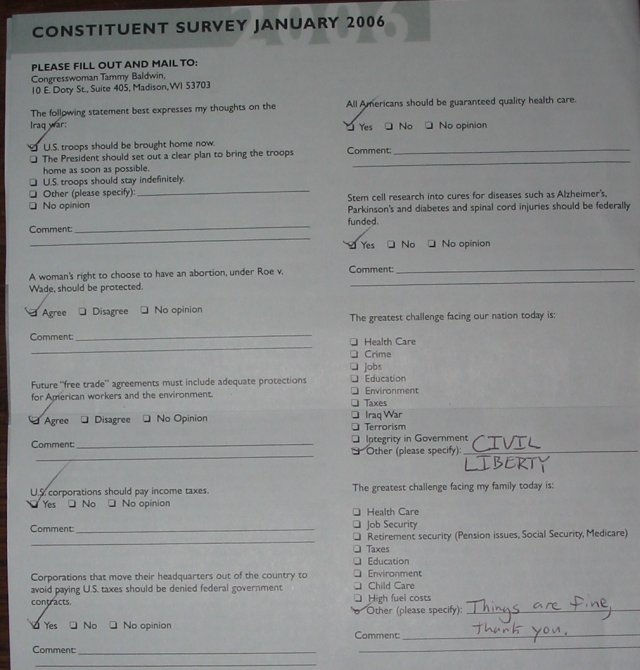 CONSTITUENT SURVEY JANUARY 2006
2006
PLEASE FILL OUT AND MAIL TO:
Congresswoman Tammy Baldwin,
10 E. Doty St., Suite 405, Madison, WI 53703
The following statement best expresses my thoughts on the
Iraq war:
U.S. troops should be brought home now.
The President should set out a clear plan to bring the troops
home as soon as possible.
U.S. troops should stay indefinitely.
Other (please specify):
No opinion
Comment:
A woman's right to choose to have an abortion, under Roe v.
Wade, should be protected.
Agree Disagree No opinion
Comment:
Future "free trade" agreements must include adequate protections
for American workers and the environment.
Agree Disagree No Opinion
Comment:
U.S. corporations should pay income taxes.
Yes No No opinion
Comment:
Corporations that move their headquarters out of the country to
avoid paying U.S. taxes should be denied federal government
contracts.
Yes No No opinion
Comment:
All Americans should be guaranteed quality health care.
Yes No No opinion
Comment:
Stem cell research into cures for diseases such as Alzheimer's,
Parkinson's and diabetes and spinal cord injuries should be federally
funded.
Yes No No opinion
Comment:
The greatest challenge facing our nation today is:
Health Care
Crime
Jobs
Education
Environment
Taxes
Iraq War
Terrorism
Integrity in Government
Other (please specify): CIVIL
LIBERTY
The greatest challenge facing my family today is:
Health Care
Job Security
Retirement security (Pension issues, Social Security, Medicare)
Taxes
Education
Environment
Child Care
High fuel costs
Other (please specify): Things are fine,
thank you.
Comment: